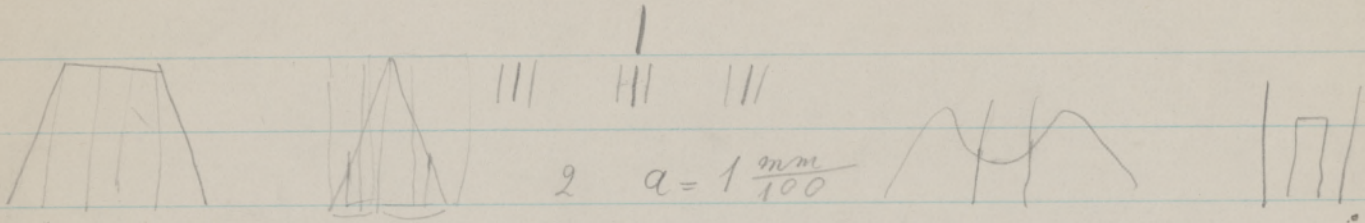 2 a = 1 mm/100